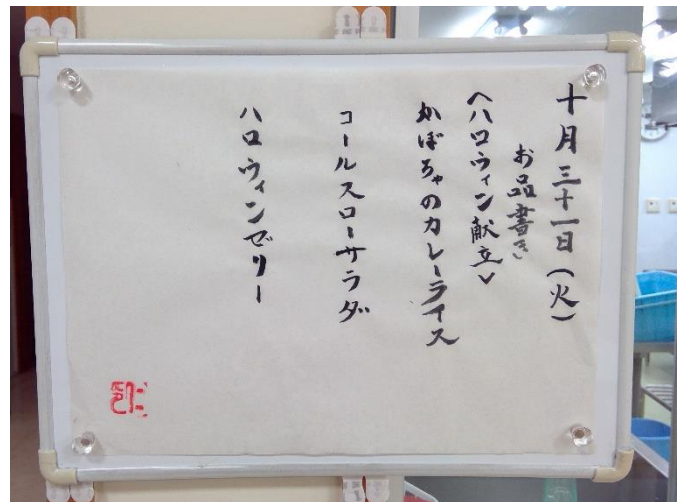 十月三十一日(火)
お品書き
<ハロウィン献立>
かぼちゃのカレーライス
コールスローサラダ
ハロウィンゼリー